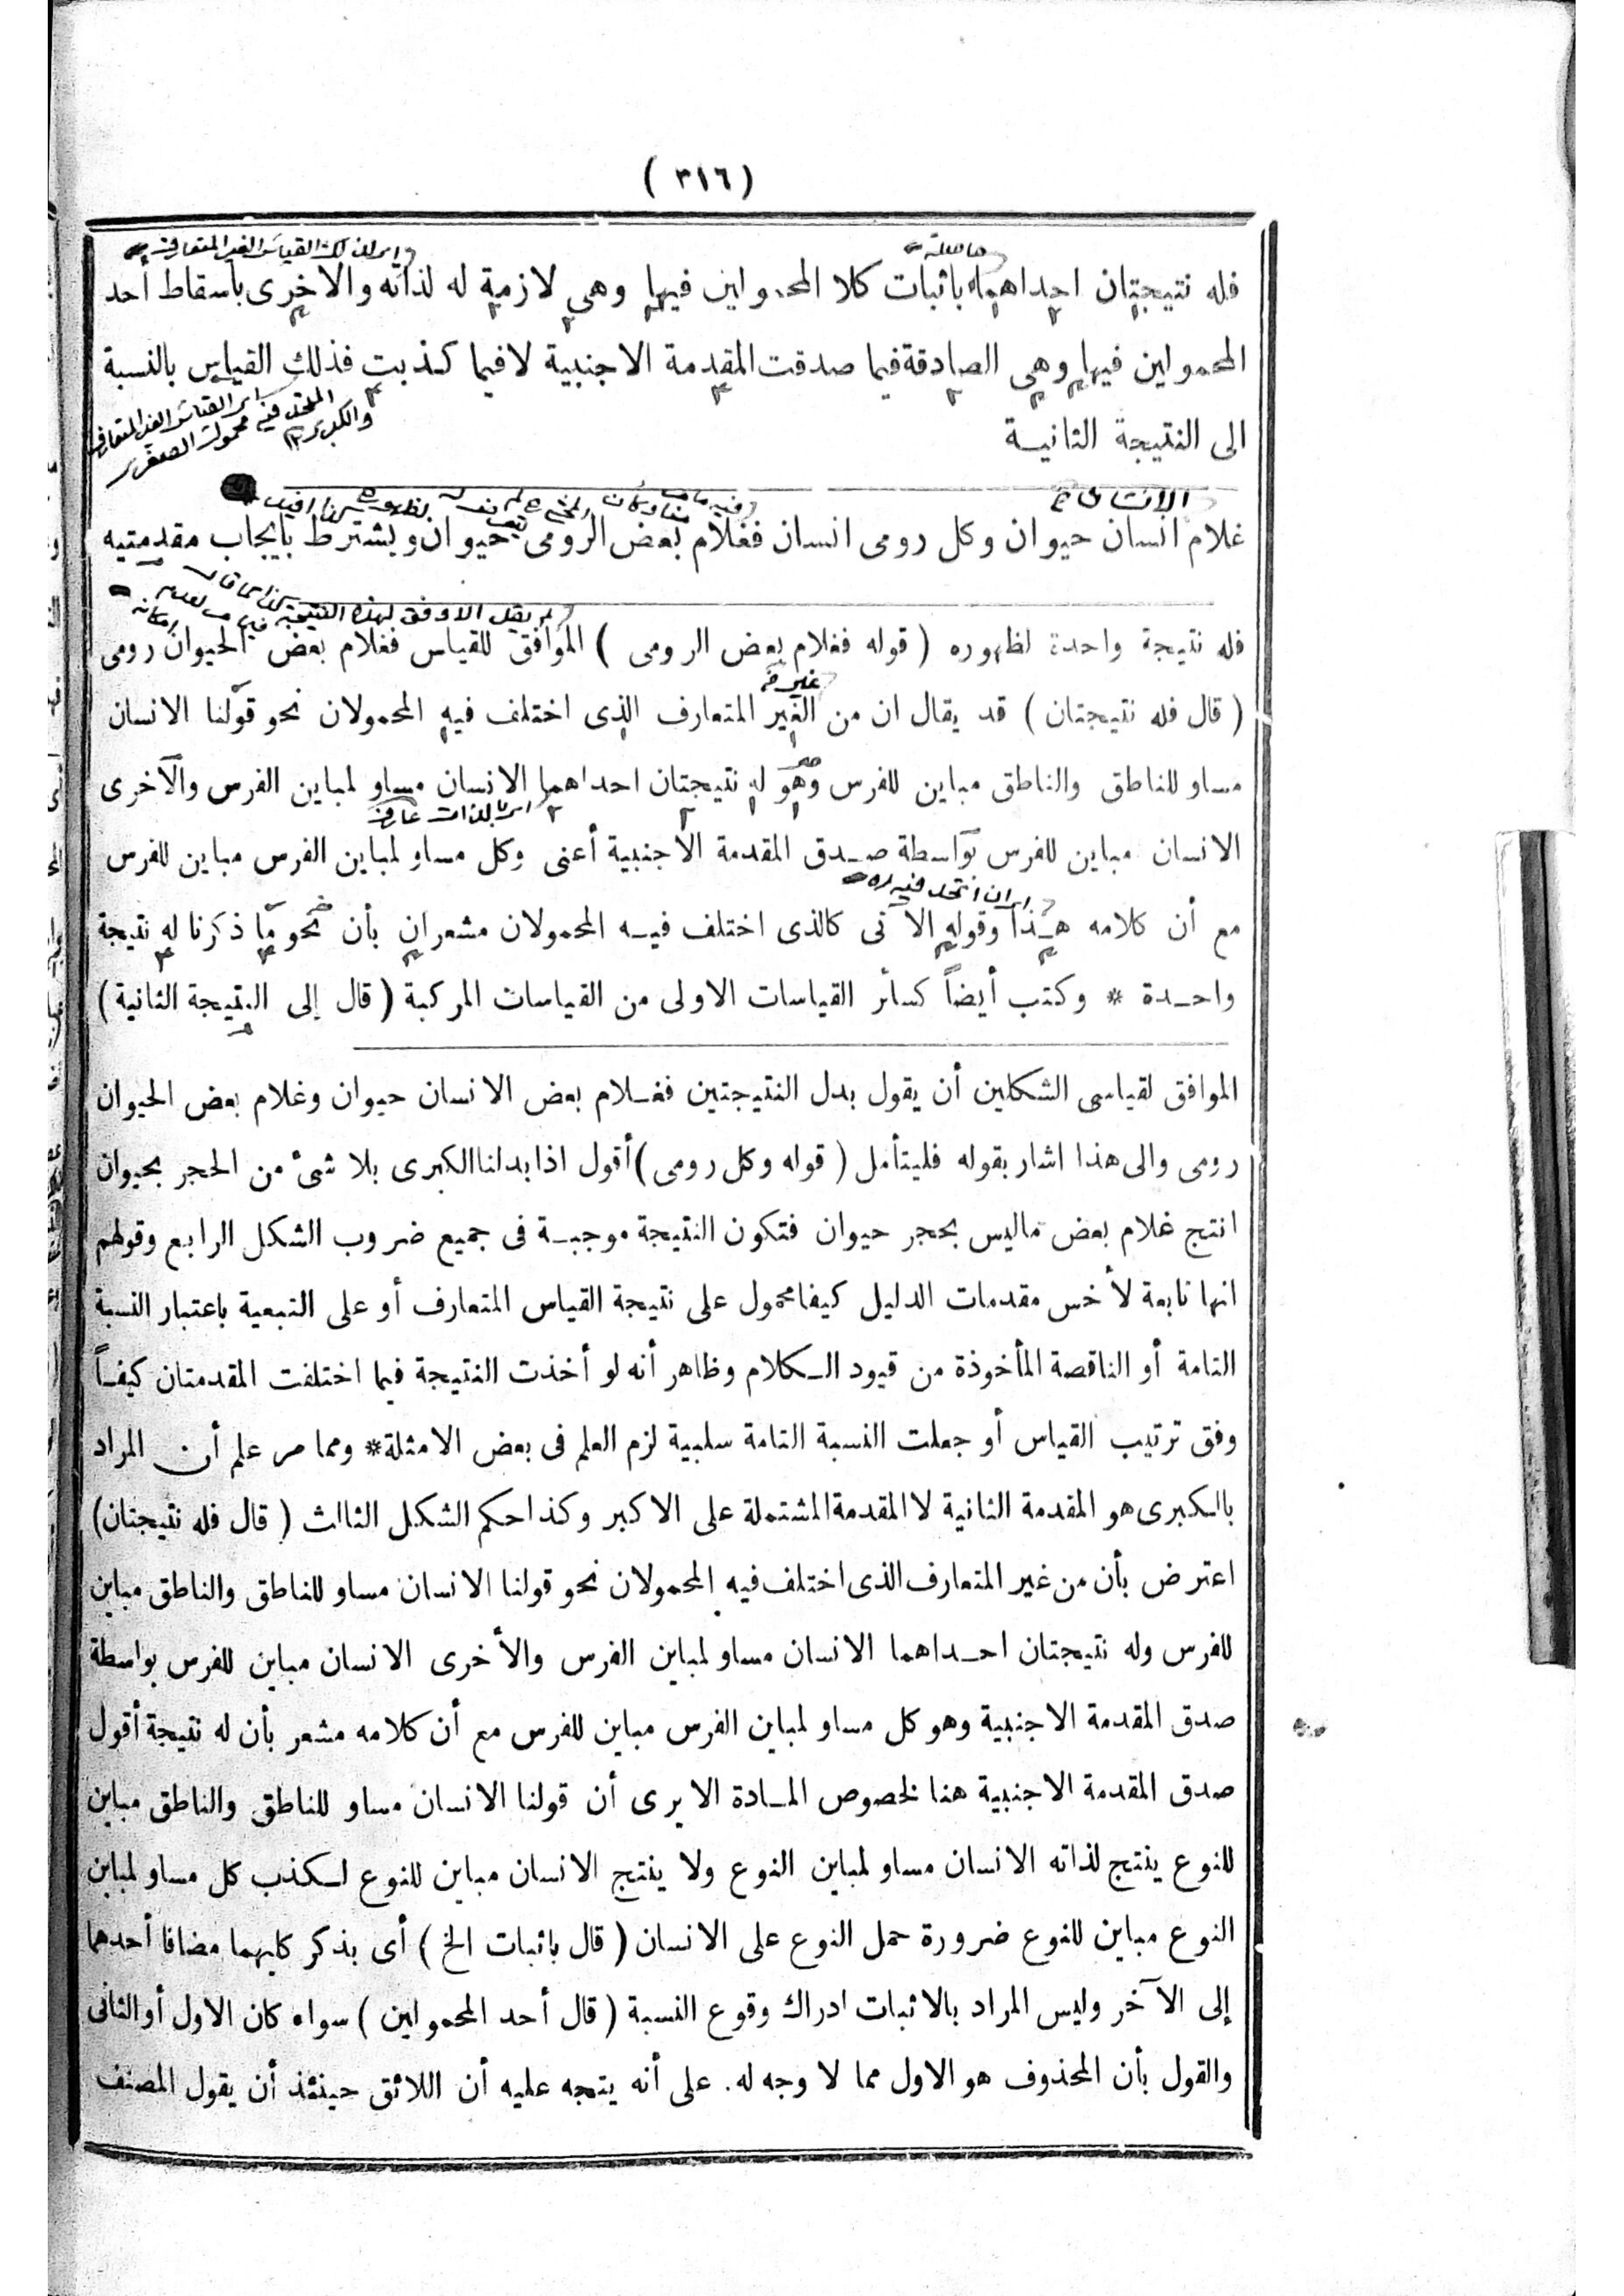 ( ٣١٦ )
فله نتيجتان احداهما باثبات كلا المحمولين فيها وهي لازمية له لذاته والاخرى باسقاط احد
المحمولين فيها وهي الصادقة فيما صدقت المقدمة الاجنبية لا فيما كذبت فذلك القياس بالنسبة
الى النتيجة الثانيـة
غلام انسان حيوان وكل رومى انسان فغلام بعض الرومى حيوان ويشترط بايجاب مقدمتيه
فله نتيجة واحدة لظهوره ( قوله فغلام بعض الرومى ) الموافق للقياس فغلام بعض الحيوان رومى
( قال فله نتيجتان ) قد يقال ان من الغير المتعارف الذى اختلف فيه المحمولان نحو قولنا الانسان
مساو للناطق والناطق مباين للفرس وهو له نتيجتان احداهما الانسان مساو لمباين الفرس والآخرى
الانسان مباين للفرس بواسطة صـدق المقدمة الاجنبية أعنى وكل مساو لمباين الفرس مباين للفرس
مع أن كلامه هـذا وقوله الآتى كالذى اختلف فيـه المحمولان مشعران بأن نحو ما ذكرنا له نتيجة
واحـدة * وكتب أيضاً كسائر القياسات الاولى من القياسات المركبة ( قال إلى النتيجة الثانية )
الموافق لقياسى الشكلين أن يقول بدل النتيجتين فغـلام بعض الانسان حيوان وغلام بعض الحيوان
رومى والى هذا اشار بقوله فليتأمل ( قوله وكل رومى ) أقول اذا بدلنا الكبرى بلا شئ من الحجر بحيوان
انتج غلام بعض ماليس بحجر حيوان فتكون النتيجة موجبـة فى جميع ضروب الشكل الرابع وقولهم
انها تابعة لأخس مقدمات الدليل كيفا محمول على نتيجة القياس المتعارف أو على التبعية باعتبار النسبة
التامة أو الناقصة المأخوذة من قيود الـكلام وظاهر أنه لو أخذت النتيجة فيما اختلفت المقدمتان كيفـاً
وفق ترتيب القياس أو جعلت النسبة التامة سلبية لزم العلم فى بعض الامثلة * ومما مر علم أن المراد
بالـكبرى هو المقدمة الثانية لا المقدمة المشتملة على الاكبر وكذا حكم الشكل الثالث ( قال فله نتيجتان )
اعترض بأن من غير المتعارف الذى اختلف فيه المحمولان نحو قولنا الانسان مساو للناطق والناطق مباين
للفرس وله نتيجتان احـداهما الانسان مساو لمباين الفرس والأخرى الانسان مباين للفرس بواسطة
صدق المقدمة الاجنبية وهو كل مساو لمباين الفرس مباين للفرس مع أن كلامه مشعر بأن له نتيجة أقول
صدق المقدمة الاجنبية هنا لخصوص المـادة الا يرى أن قولنا الانسان مساو للناطق والناطق مباين
للنوع ينتج لذاته الانسان مساو لمباين النوع ولا ينتج الانسان مباين للنوع لـكذب كل مساو لمباين
النوع مباين للنوع ضرورة حمل النوع على الانسان ( قال باثبات الخ ) أى بذكر كليهما مضافا أحدهما
إلى الآخر وليس المراد بالاثبات ادراك وقوع النسبة ( قال أحد المحمولين ) سواء كان الاول أو الثانى
والقول بأن المحذوف هو الاول مما لا وجه له . على أنه يتجه عليه أن اللائق حينئذ أن يقول المصنف